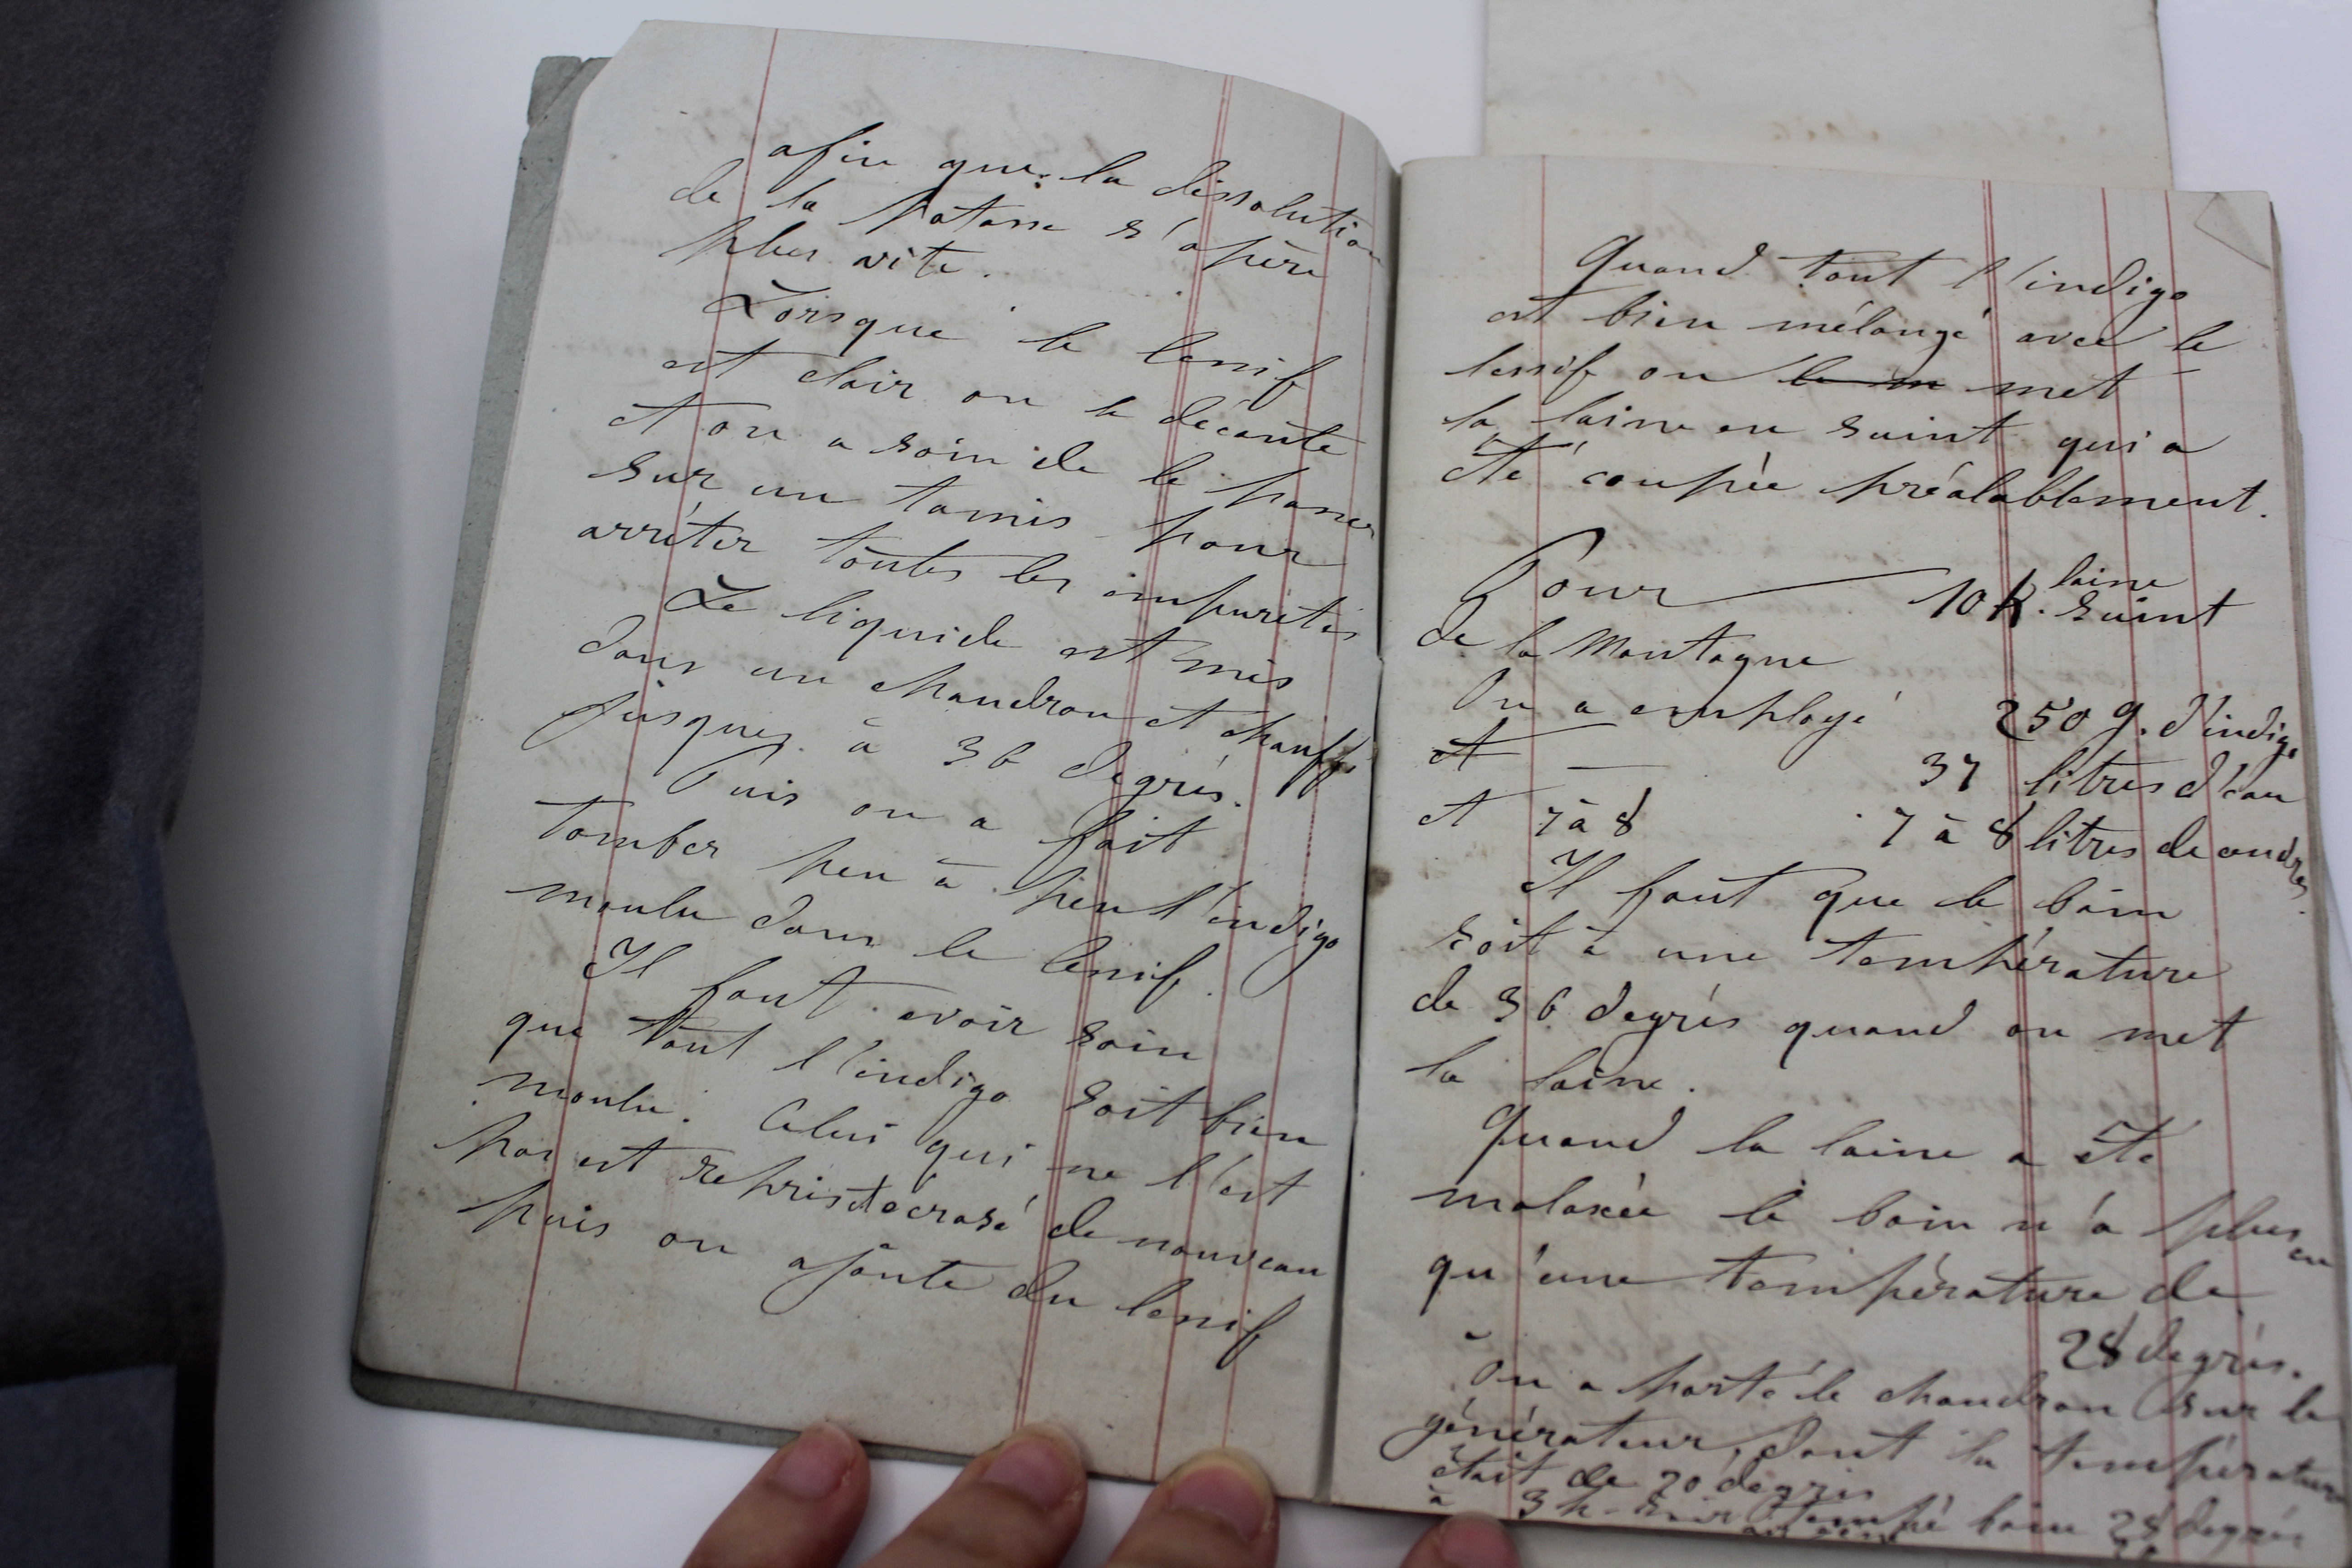 afin que la dissolution
de la potasse s'opère
plus vite.
Lorsque le lessif
est clair on le décante
et on a soin de le passer
sur un tamis pour
arrêter toutes les impuretés
Le liquide est mis
dans un chaudron et chauffé
jusques à 36 degrés.
Puis on a fait
tomber peu à peu l'indigo
moulu dans le lessif.
Il faut avoir soin
que tout l'indigo soit bien
moulu. Celui qui ne l'est
pas est repris et écrasé de nouveau
puis on ajoute du lessif
Quand tout l'indigo
est bien mélangé avec le
lessif on le m met
la laine en suint qui a
été coupée préalablement.
Pour 10 k. laine suint
de la Montagne
On a employé 250 g. d'indigo
et — 37 litres d'eau
et 7 à 8 7 à 8 litres de cendres.
Il faut que le bain
soit à une température
de 36 degrés quand on met
la laine.
Quand la laine a été
malaxée le bain n'a plus en
qu'une température de
28 degrés.
On a porté le chaudron sur le
générateur, dont la température
était de 20 degrés
à 3 h. soir bain 28 degrés